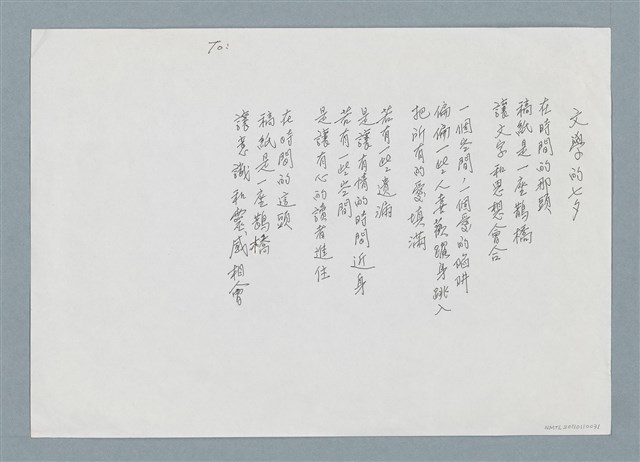 To:
文學的七夕
在時間的那頭
稿紙是一座鵲橋
讓文字和思想會合
一個空間,一個愛的陷阱
偏偏一些人喜歡躍身跳入
把所有的愛填滿
若有一些遺漏
是讓有情的時間近身
若有一些空間
是讓有心的讀者進住
在時間的這頭
稿紙是一座鵲橋
讓意識和靈感相會